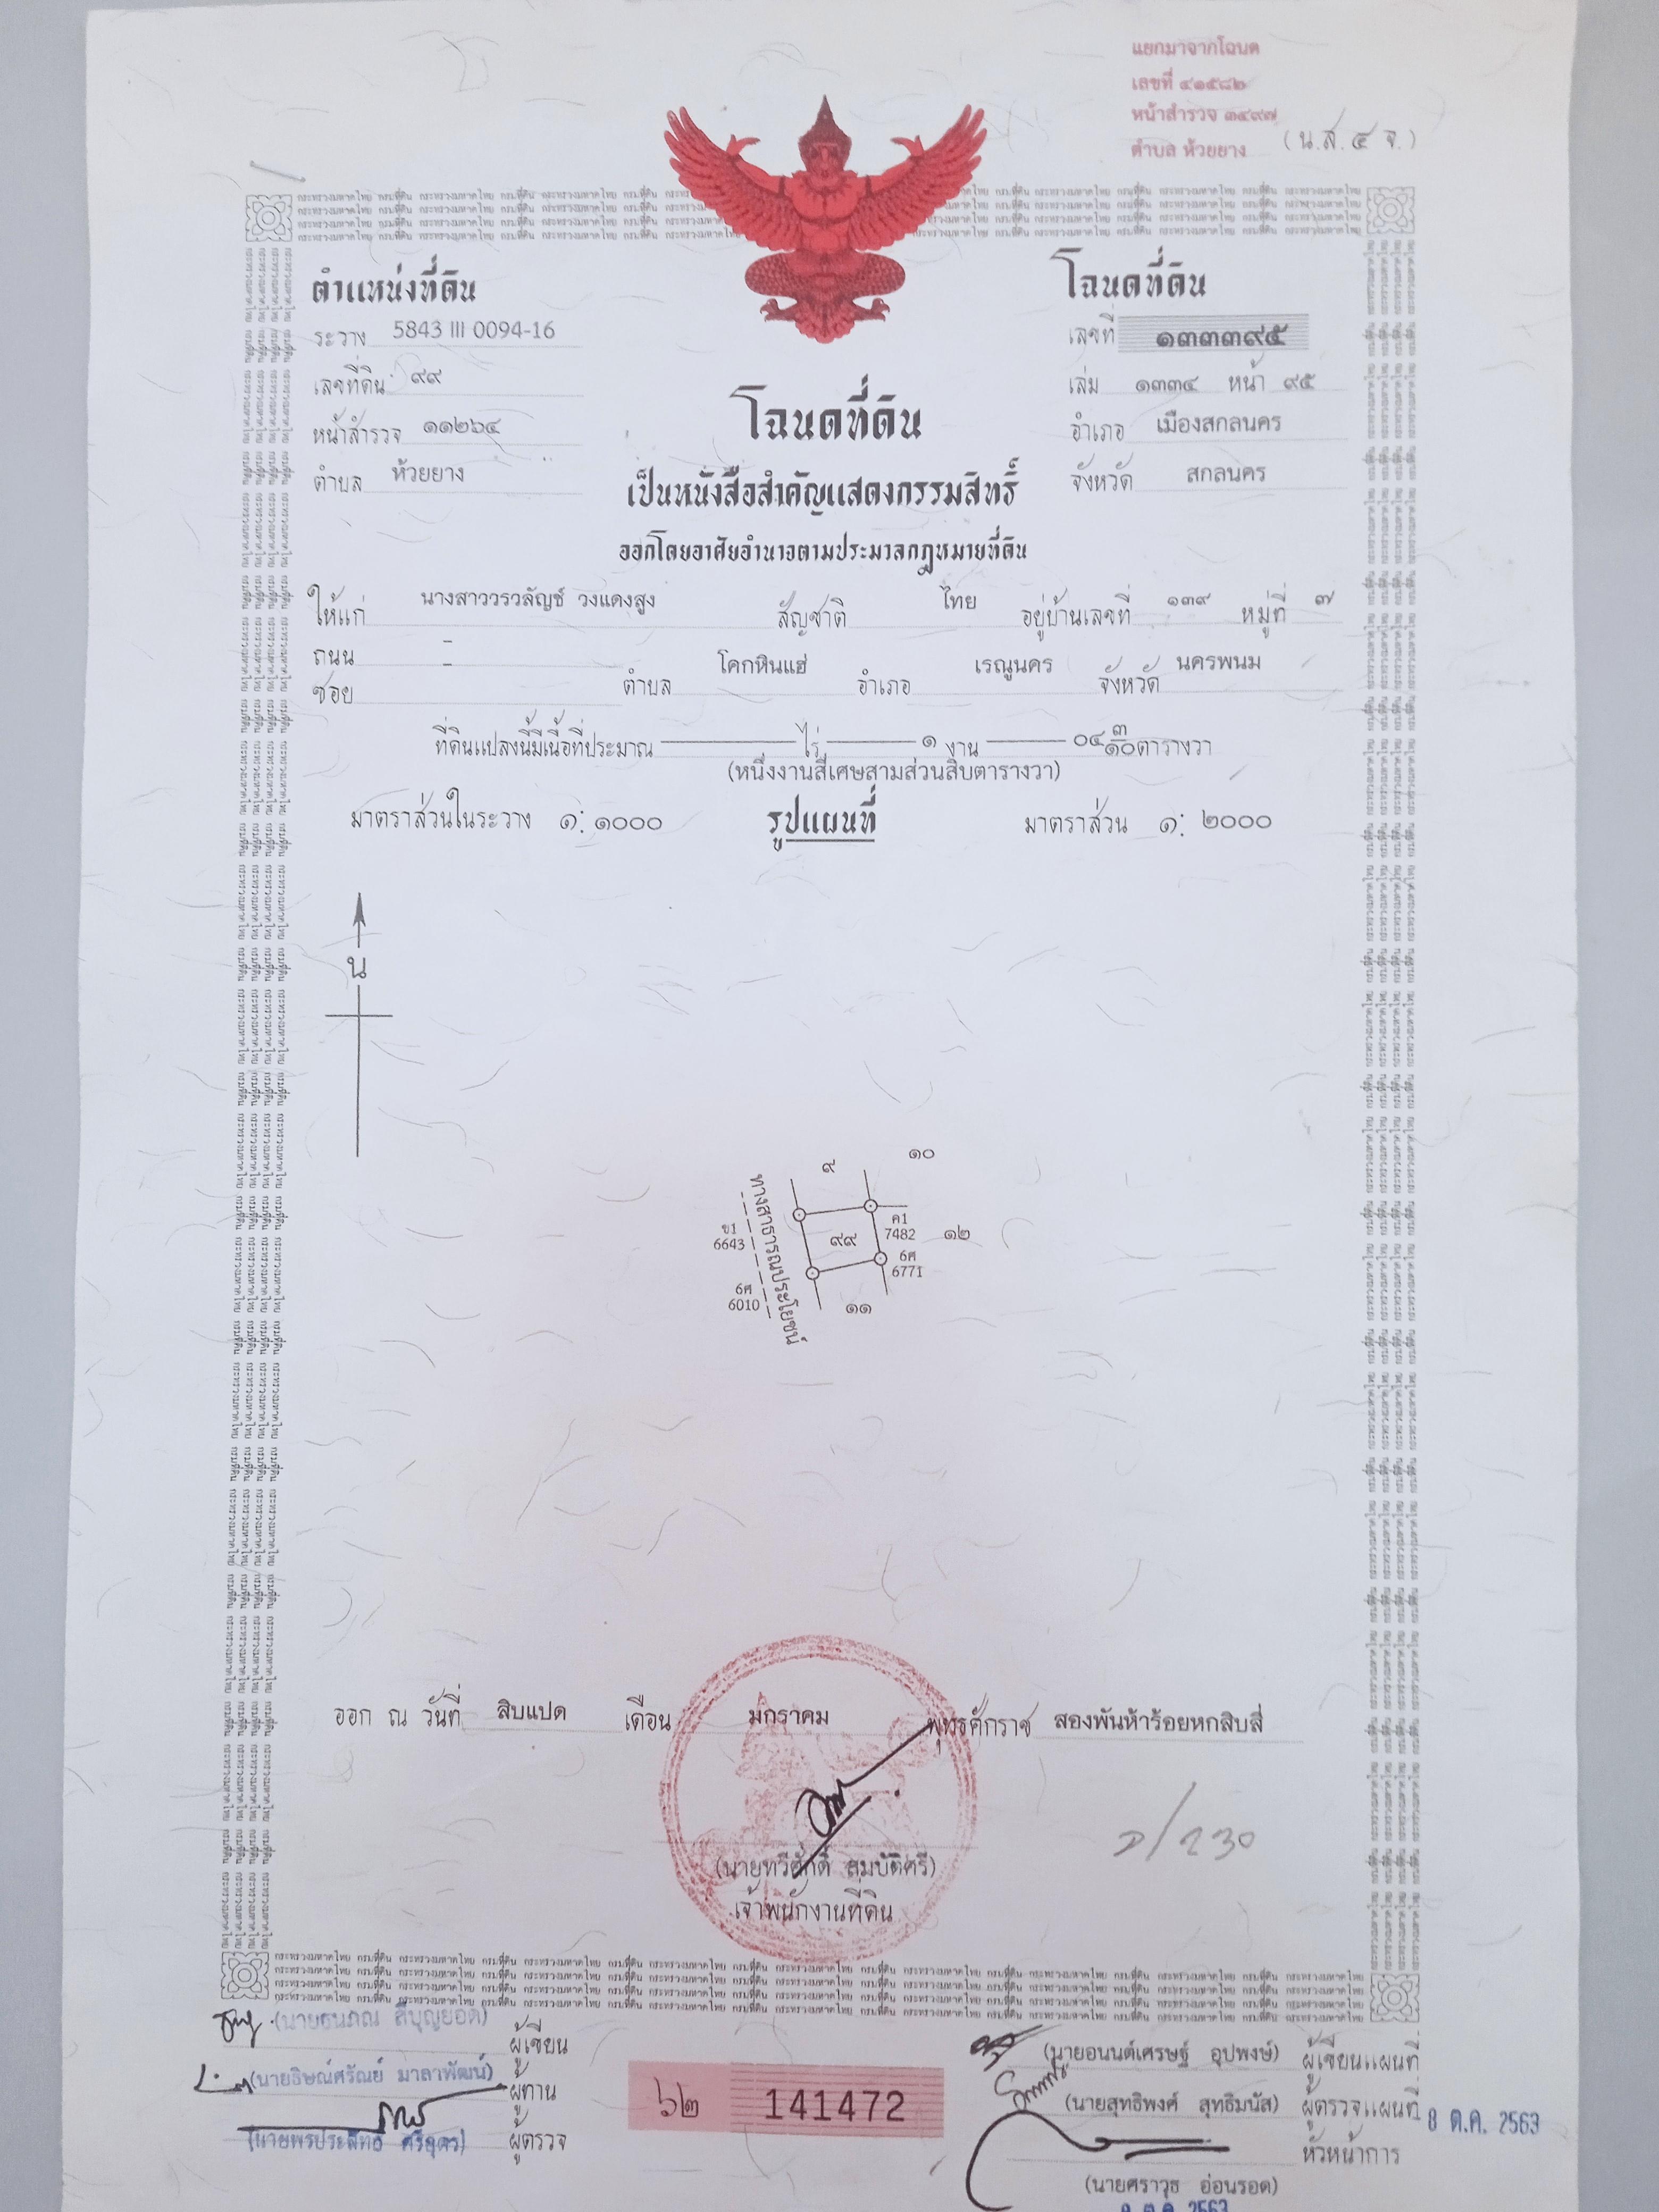 แยกมาจากโฉนด
เลขที่ ๔๑๕๘๒
หน้าสำรวจ ๓๔๙๗
ตำบล ห้วยยาง
(น.ส.๔ จ.)
ตำแหน่งที่ดิน
ระวาง 5843 III 0094-16
เลขที่ดิน ๙๙
หน้าสำรวจ ๑๑๒๖๔
ตำบล ห้วยยาง
โฉนดที่ดิน
เลขที่ ๑๓๓๓๙๕
เล่ม ๑๓๓๔ หน้า ๙๕
อำเภอ เมืองสกลนคร
จังหวัด สกลนคร
โฉนดที่ดิน
เป็นหนังสือสำคัญแสดงกรรมสิทธิ์
ออกโดยอาศัยอำนาจตามประมวลกฎหมายที่ดิน
ให้แก่ นางสาววรวลัญช์ วงแดงสูง สัญชาติ ไทย อยู่บ้านเลขที่ ๑๓๙ หมู่ที่ ๗
ถนน –
ซอย – ตำบล โคกหินแฮ่ อำเภอ เรณูนคร จังหวัด นครพนม
ที่ดินแปลงนี้มีเนื้อที่ประมาณ — ไร่ — ๑ งาน — ๐๔ ๓/๑๐ ตารางวา
(หนึ่งงานสี่เศษสามส่วนสิบตารางวา)
มาตราส่วนในระวาง ๑: ๑๐๐๐ รูปแผนที่ มาตราส่วน ๑: ๒๐๐๐
น
๙ ๑๐
ทางสาธารณประโยชน์
ข1
6643
๙๙
ค1
7482
๑๒
6ศ
6771
6ศ
6010
๑๑
ออก ณ วันที่ สิบแปด เดือน มกราคม พุทธศักราช สองพันห้าร้อยหกสิบสี่
(นายทวีศักดิ์ สมบัติศรี)
เจ้าพนักงานที่ดิน
(นายธนภณ สีบุญยอด) ผู้เขียน
(นายธิษณ์ศรัณย์ มาลาพัฒน์) ผู้ทาน
ผู้ตรวจ
๖๒ 141472
(นายอนนต์เศรษฐ์ อุปพงษ์) ผู้เขียนแผนที่
(นายสุทธิพงศ์ สุทธิมนัส) ผู้ตรวจแผนที่ 8 ต.ค. 2563
หัวหน้าการ
(นายศราวุธ อ่อนรอด)